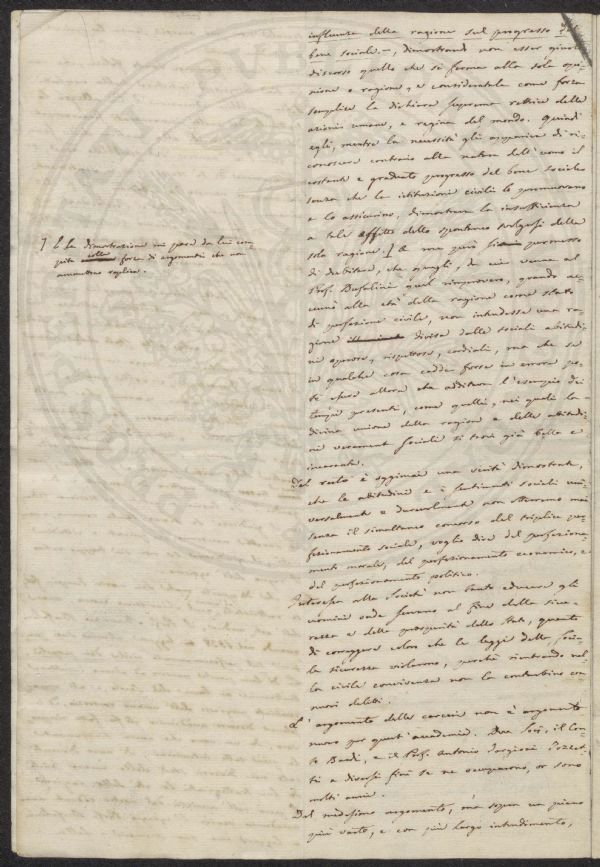 influenza della ragione sul progresso del
bene sociale —, dimostrando non esser giusto
discorso quello che si ferma alla sola opi-
nione e ragione, e consideratala come forza
semplice la dichiara suprema rettrice delle
azioni umane, e regina del mondo. Quindi
egli, mentre la necessità gli appariva di ri-
conoscere contrario alla natura dell'uomo il
costante e graduato progresso del bene sociale
senza che le istituzioni civili lo promuovano
e lo assicurino, dimostrava la insufficienza
a tale effetto dello spontaneo svolgersi della
sola ragione. ] E ma qui sia permesso
di dubitare, che quegli, da cui venne al
Prof. Bufalini quel rimprovero, quando ac-
cennò alla età della ragione come stato
di perfezione civile, non intendesse una ra-
gione divisa dalle sociali abitudi-
ni operose, rispettose, cordiali, ma che se
in qualche cosa cadde forse in errore po-
te esser allora che additava l'esempio dei
tempi presenti, come quelli, nei quali la
divina unione della ragione e delle abitudi-
ni veramente sociali si trovi già bella e
incarnata.
] E la dimostrazione mi parve da lui com-
pita colla forza di argomenti che non
ammettono replica.
Del resto è oggimai una verità dimostrata,
che le abitudini e i sentimenti sociali uni-
versalmente e durevolmente non otterremo mai
senza il simultaneo concorso del triplice per-
fezionamento sociale, voglio dire del perfeziona-
mento morale, del perfezionamento economico, e
del perfezionamento politico.
Interessa alla Società non tanto educare gli
uomini onde servano al fine della sicu-
rezza e della prosperità dello Stato, quanto
di correggere coloro che le leggi della socia-
le sicurezza violarono, perchè rientrando nel-
la civile convivenza non la conturbino con
nuovi delitti.
L'argomento delle carceri non è argomento
nuovo per quest'accademia. Due Soci, il Con-
te Bardi, e il Prof. Antonio Targioni Tozzet-
ti a diversi fini se ne occuparono, or sono
molti anni.
Del medesimo argomento, ma sopra un piano
più vasto, e con più largo intendimento,